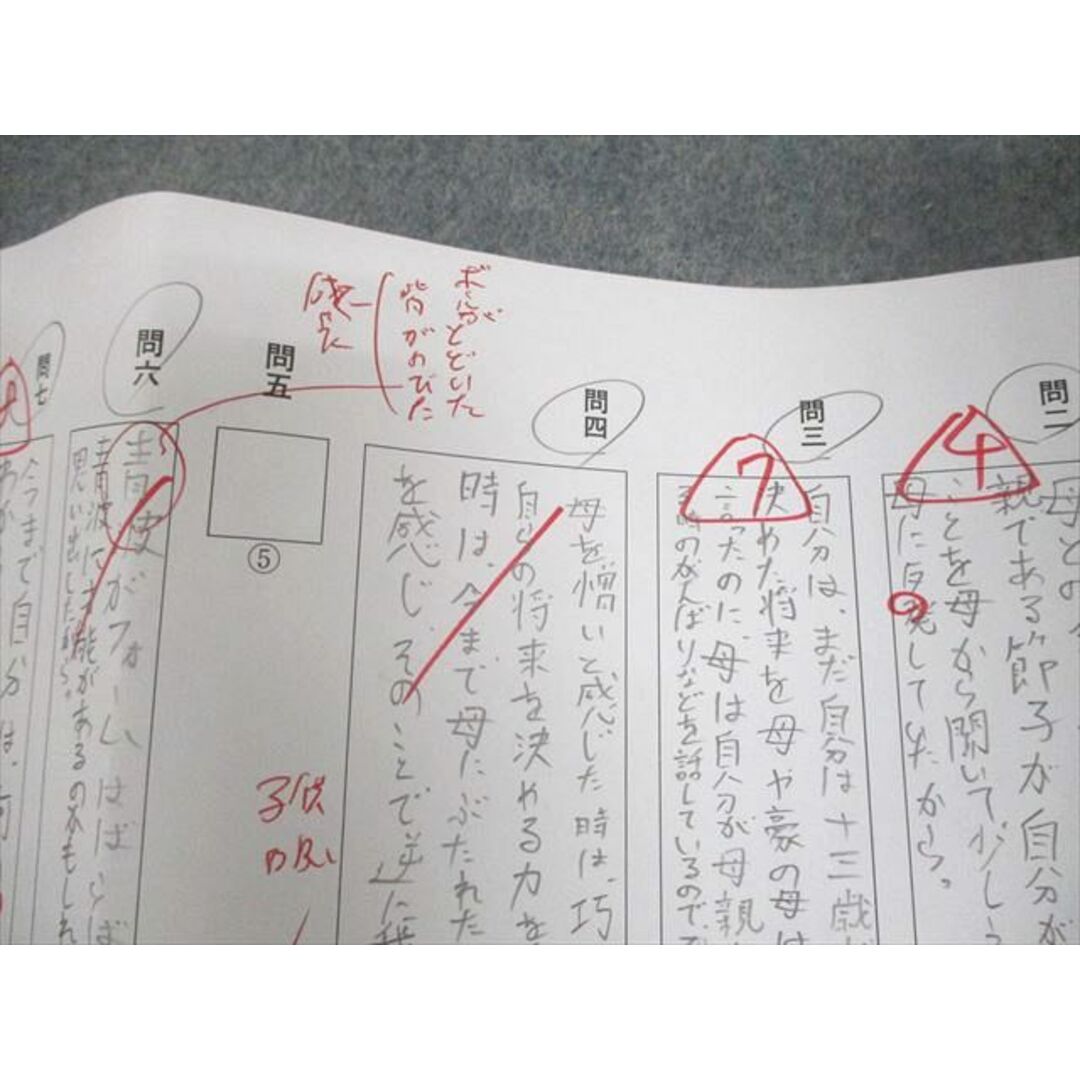 問二
4
母との
親である節子が自分が
ことを母から聞いて少しう
母に反発していたから。
問三
7
自分は、まだ自分は十三歳だ
決めた将来を母や豪の母は
言ったのに、母は自分が母親
時のがんばりなどを話しているので
問四
母を憎いと感じた時は、巧
自らの将来を決める力を
時は、今まで母にぶたれた
を感じ、そのことで逆に
ボールがとどいた
背がのびた
成長
問五
⑤
子供
問六
青波がフォームはばらば
青波には才能があるのかもしれ
思い出したから。
問七
今まで自分は、